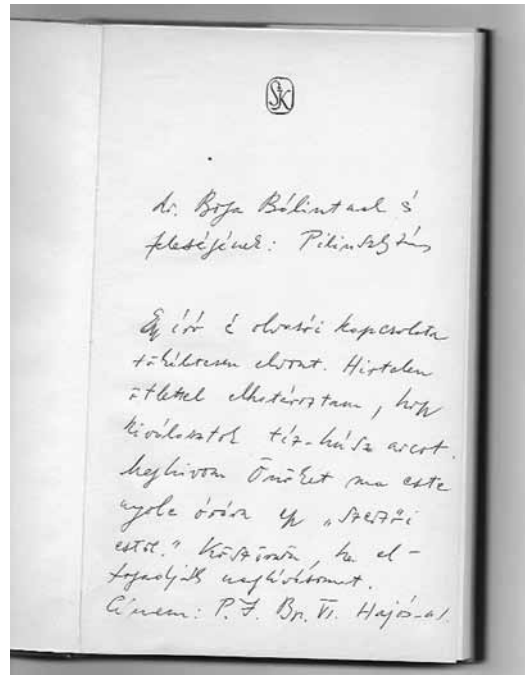 SzK
dr. Boga Bálintnak s
feleségének: Pilinszky János
Egy író é olvasói kapcsolata
tökéletesen elvont. Hirtelen
ötlettel elhatároztam, hogy
kiválasztok tíz-húsz arcot.
Meghívom Önöket ma este
nyolc órára egy „szerzői
estre." Köszönöm, ha el-
fogadják meghívásomat.
Címem: P. J. Bp. VI. Hajós-u 1.